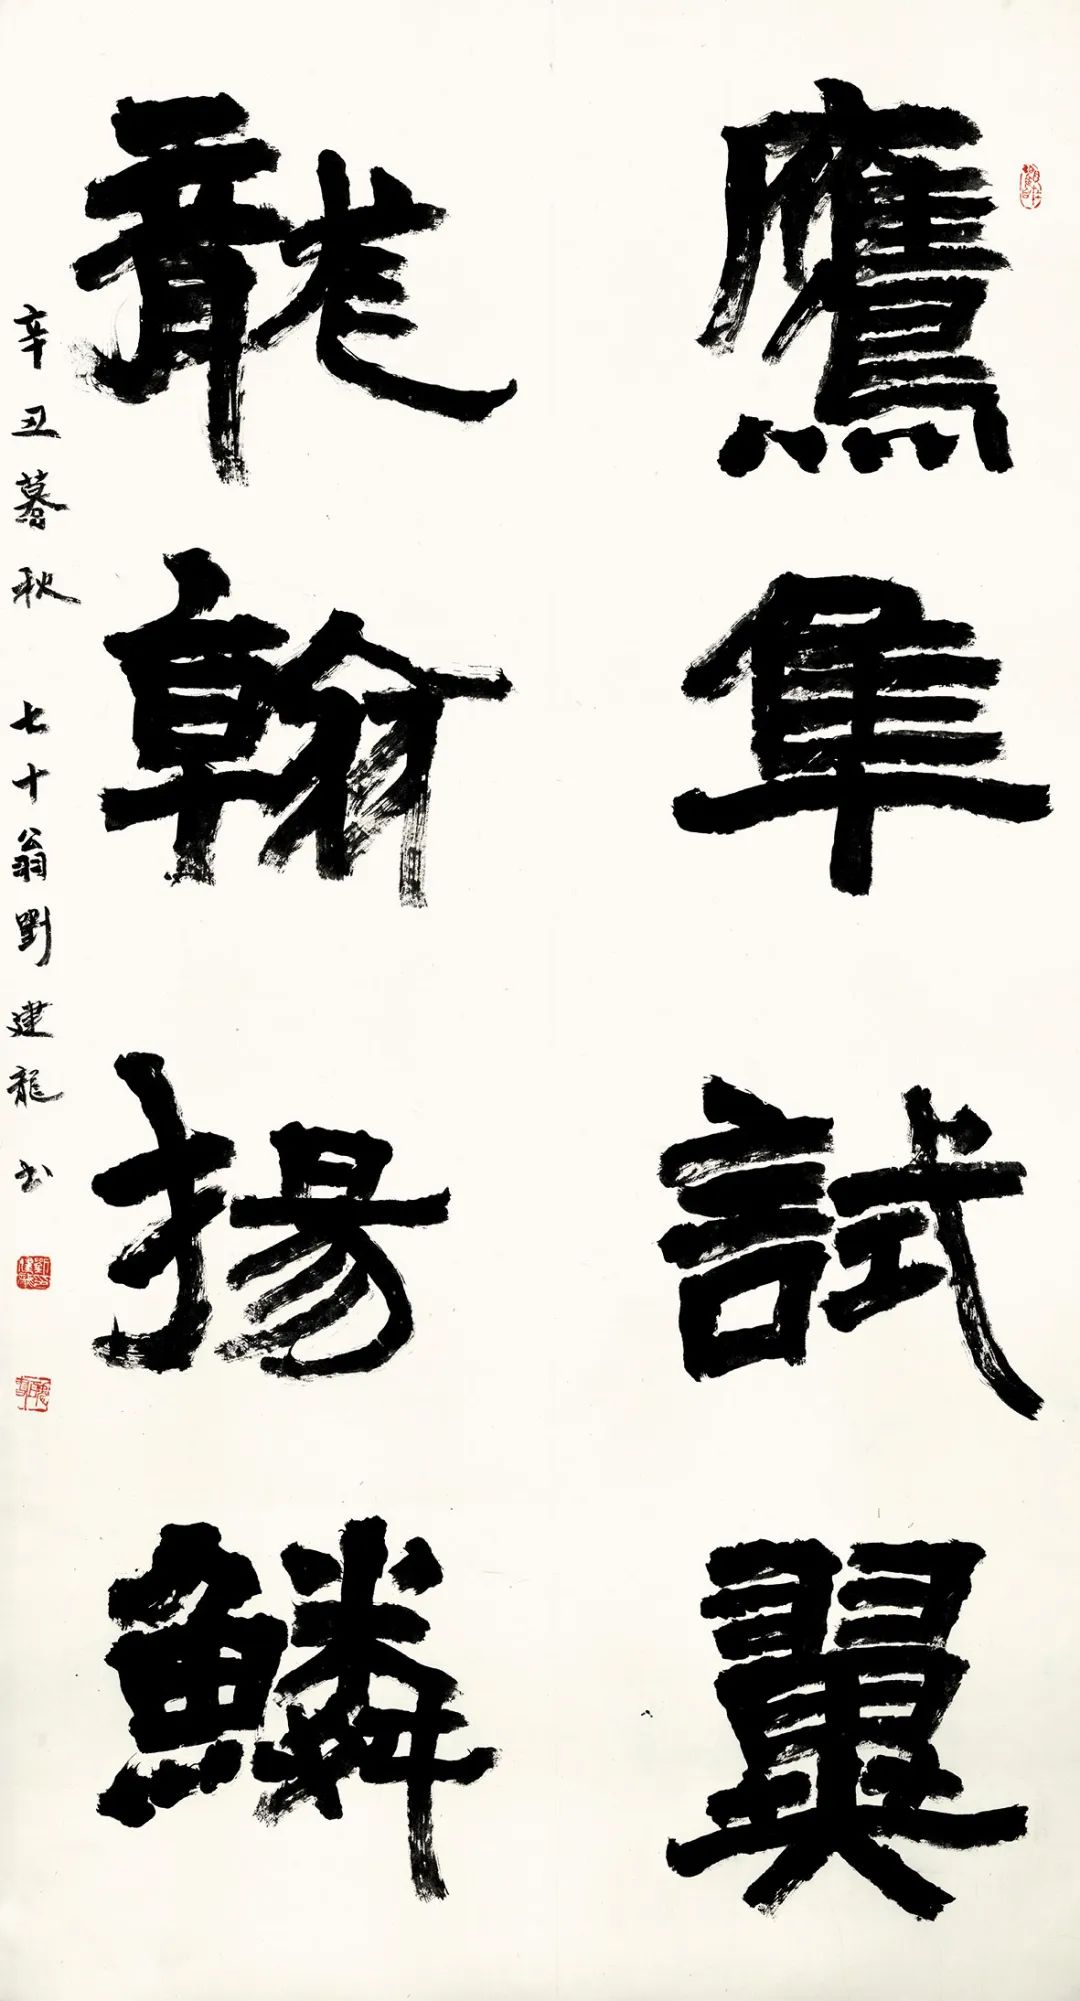 鷹隼試翼
龍翰揚鱗
辛丑暮秋 七十翁劉建龍書